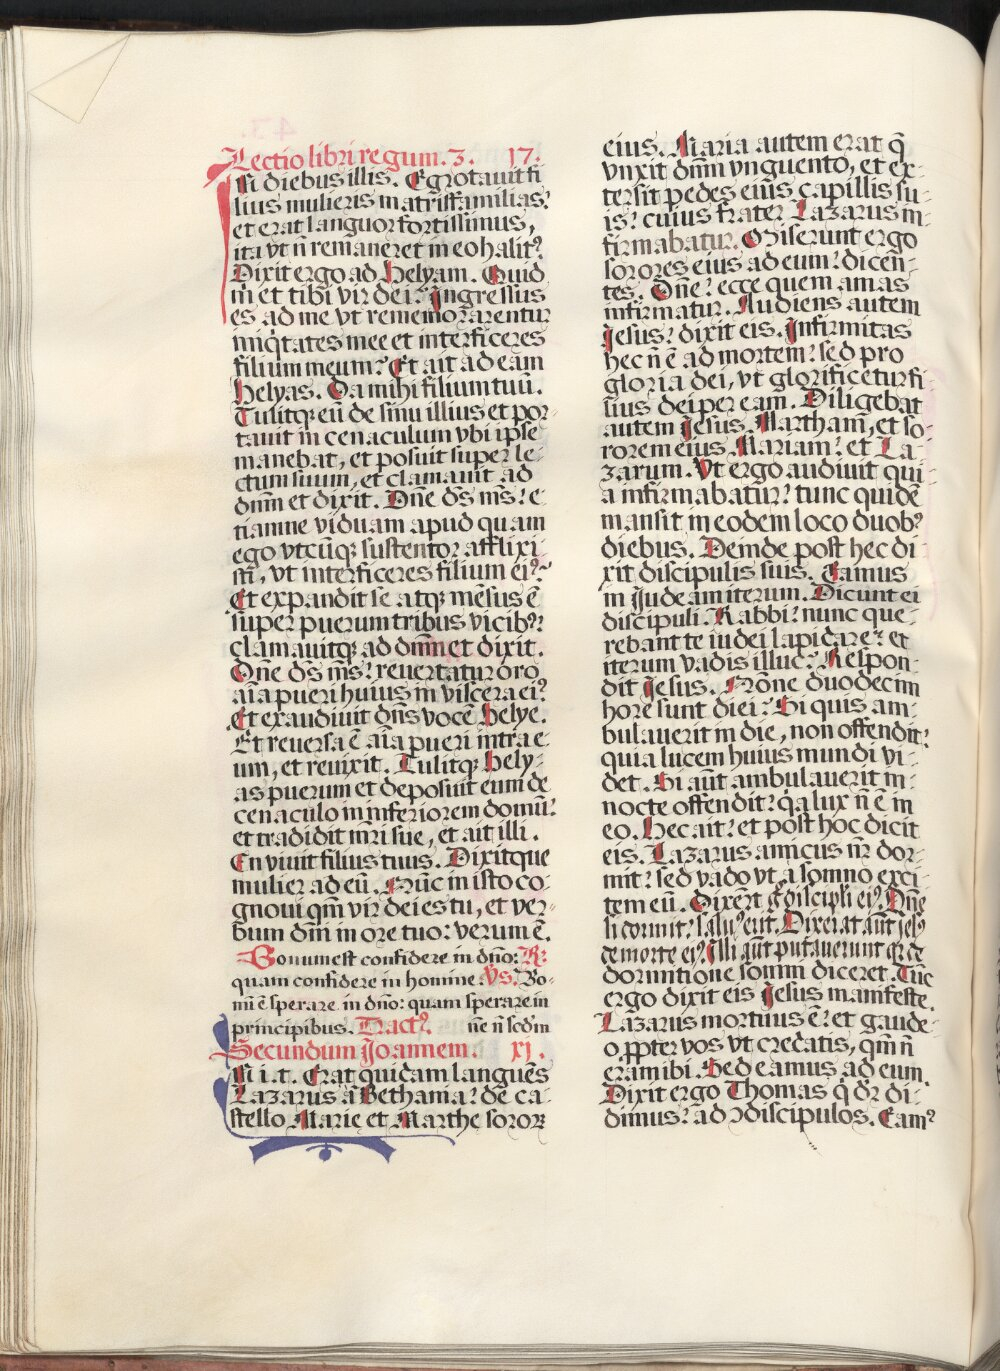 Lectio libri regum. 3. 17.
In diebus illis. Egrotauit fi
lius mulieris matrisfamilias:
et erat languor fortissimus,
ita vt n̄ remaneret in eo halit⁹.
Dixit ergo ad Helyam. Quid
m̄ et tibi vir dei? Ingressus
es ad me vt rememorarentur
iniq̇tates mee et interficeres
filium meum? Et ait ad eam
Helyas. Da mihi filium tuū.
Tulitqꝫ eū de sinu illius et por-
tauit in cenaculum vbi ipse
manebat, et posuit super le
ctum suum, et clamauit ad
dnm̄ et dixit. Dn̄e ds̄ ms̄: e
tiamne viduam apud quam
ego vtcūqꝫ sustentor afflixi
sti, vt interficeres filium ei⁹?
Et expandit se atqꝫ mēsus ē
super puerum tribus vicib⁹:
clamauitqꝫ ad dnm̄ et dixit.
Dn̄e ds̄ ms̄: reuertatur oro
aīa pueri huius in viscera ei⁹.
Et exaudiuit dn̄s vocē Helye.
Et reuersa ē aīa pueri intra e-
um, et reuixit. Tulitqꝫ Hely-
as puerum et deposuit eum de
cenaculo in inferiorem domū:
et tradidit mr̄i sue, et ait illi.
En viuit filius tuus. Dixitque
mulier ad eū. Nūc in isto co-
gnoui qm̄ vir dei es tu, et ver-
bum dn̄i in ore tuo: verum ē.
Bonum est confidere in dn̄o: R.
quam confidere in homine. Vs. Bo-
nū ē sperare in dn̄o: quam sperare in
principibus. Tract⁹. ne n̄ scdm
Secundum Joannem. xj.
In i. t. Erat quidam languēs
Lazarus a Bethania: de ca-
stello Marie et Marthe soror
eius. Maria autem erat q̄
vnxit dnm̄ vnguento, et ex-
tersit pedes eius capillis su-
is: cuius frater Lazarus in-
firmabatur. Miserunt ergo
sorores eius ad eum: dicen-
tes. Dn̄e: ecce quem amas
infirmatur. Audiens autem
Jesus: dixit eis. Infirmitas
hec n̄ ē ad mortem: sed pro
gloria dei, vt glorificetur fi-
lius dei per eam. Diligebat
autem Jesus Martham, et so-
rorem eius Mariam: et La-
zarum. Vt ergo audiuit qui-
a infirmabatur: tunc quidē
mansit in eodem loco duob⁹
diebus. Deinde post hec di-
xit discipulis suis. Eamus
in Judeam iterum. Dicunt ei
discipuli. Rabbi: nunc que-
rebant te iudei lapidare: et
iterum vadis illuc? Respon-
dit Jesus. Nōne duodecim
hore sunt diei? Si quis am-
bulauerit in die, non offendit:
quia lucem huius mundi vi-
det. Si aūt ambulauerit in-
nocte offendit: q̇a lux n̄ ē in
eo. Hec ait: et post hoc dicit
eis. Lazarus amicus nr̄ dor-
mit: sed vado vt a somno exci-
tem eū. Dixerūt g̊ discipli ei⁹. Dn̄e
si dormit: salu⁹ erit. Dixerat aūt Jes⁹
de morte ei⁹. Illi aūt putauerunt qꝫ de
dormitione somni diceret. Tūc
ergo dixit eis Jesus manifeste.
Lazarus mortuus ē: et gaude-
o ꝓpter vos vt credatis, qm̄ n̄
eram ibi. Sed eamus ad eum.
Dixit ergo Thomas q̇ dr̄ di-
dimus: ad ꝯdiscipulos. Eam⁹